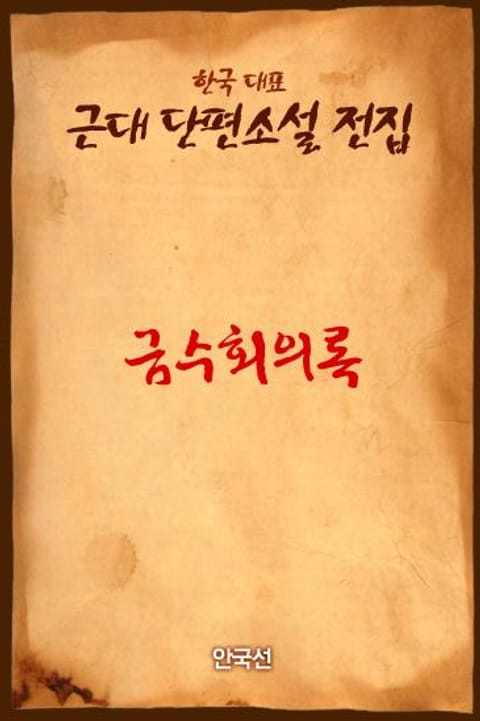 한국 대표
근대 단편소설 전집
금수회의록
안국선